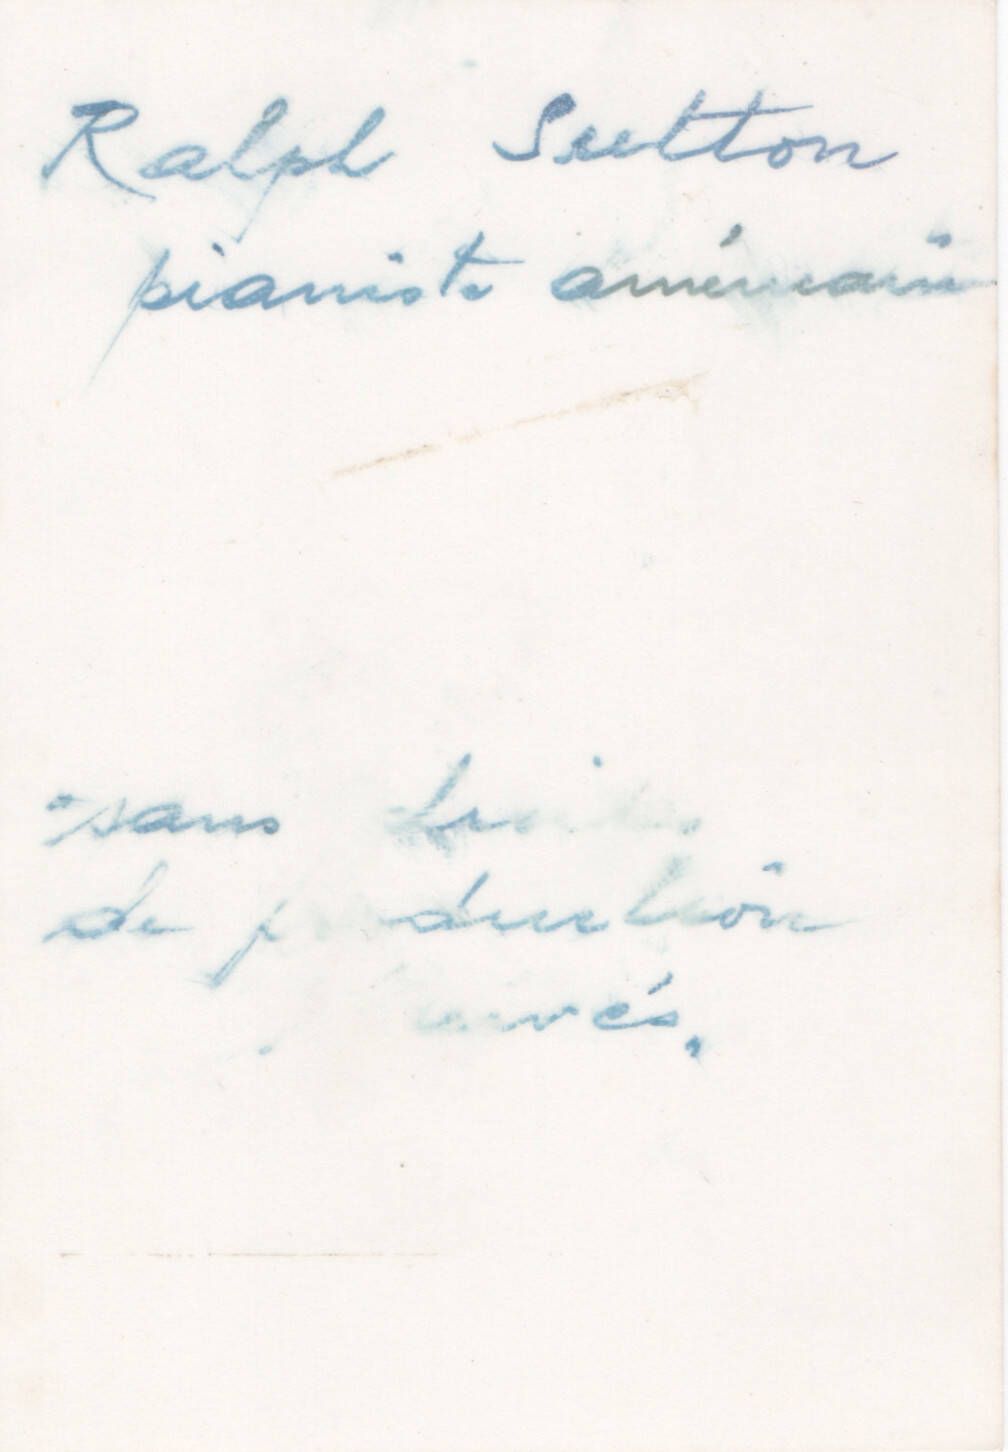 Ralph Sutton
pianiste américain
"sans
de production